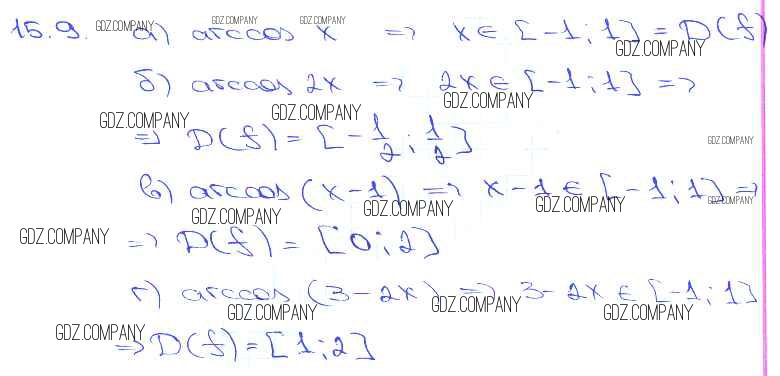 15.9. GDZ.COMPANY а) arccos x GDZ.COMPANY GDZ.COMPANY => x ∈ [-1; 1] = D(f) GDZ.COMPANY
б) arccos 2x => 2x ∈ [-1; 1] => GDZ.COMPANY
GDZ.COMPANY => D(f) = [-1/2; 1/2] GDZ.COMPANY GDZ.COMPANY
в) arccos (x-1) => x-1 ∈ [-1; 1] => GDZ.COMPANY GDZ.COMPANY GDZ.COMPANY GDZ.COMPANY
GDZ.COMPANY => D(f) = [0; 2]
г) arccos (3-2x) => 3-2x ∈ [-1; 1] GDZ.COMPANY GDZ.COMPANY GDZ.COMPANY
GDZ.COMPANY => D(f) = [1; 2]